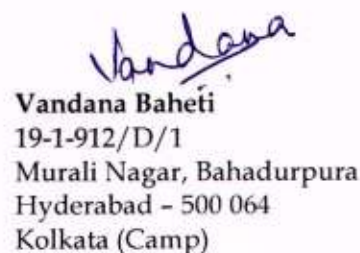 Vandana
Vandana Baheti
19-1-912/D/1
Murali Nagar, Bahadurpura
Hyderabad – 500 064
Kolkata (Camp)